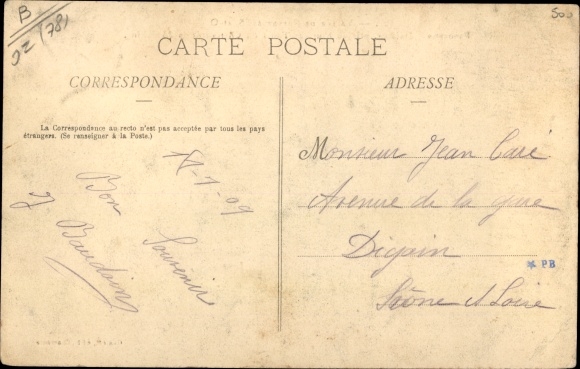 B
02 (78)
500
CARTE POSTALE
CORRESPONDANCE
ADRESSE
La Correspondance au recto n'est pas acceptée par tous les pays
étrangers. (Se renseigner à la Poste.)
-1-09
Bon
Souvenir
J. Baudoin
Monsieur Jean Caré
Avenue de la gare
Digoin
Saône et Loire
PB